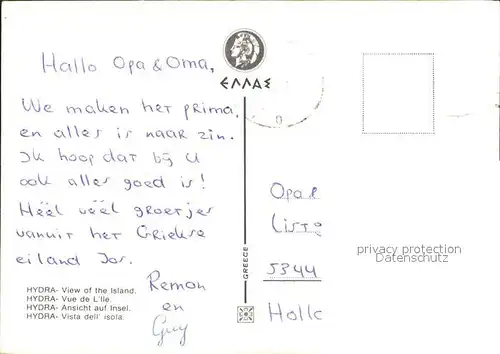 Hallo Opa & Oma,
We maken het prima.
en alles is naar zin.
Ik hoop dat bij U
ook alles goed is!
Héél véél groetjes
vanuit het Griekse
eiland Ios.
Remon
en
Guy
HYDRA- View of the Island.
HYDRA- Vue de L'Ile.
HYDRA- Ansicht auf Insel.
HYDRA- Vista dell' isola.
ΕΛΛΑΣ
GREECE
Opa &
5344
privacy protection
Datenschutz